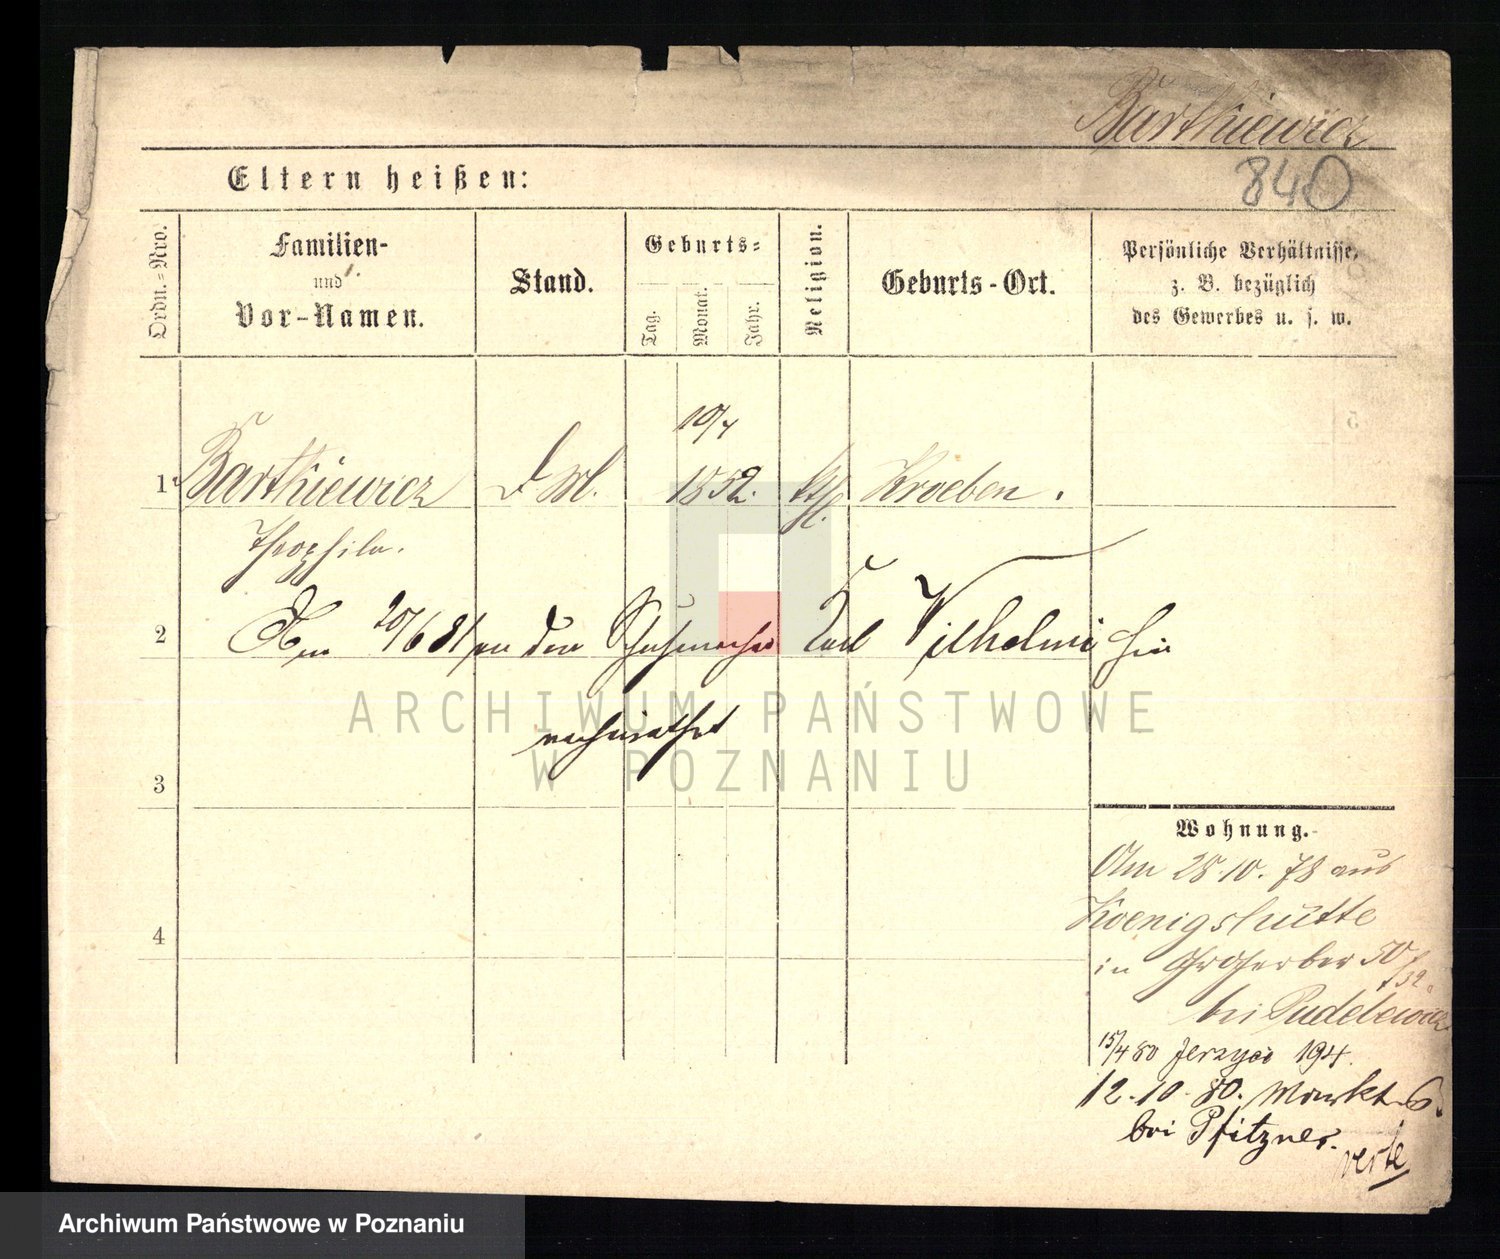 Bartkiewicz
840
Eltern heißen:
Ordn.=Nro.
Familien-
und
Vor-Namen.
Stand.
Geburts=
Tag.
Monat.
Jahr.
Religion.
Geburts-Ort.
Persönliche Verhältnisse,
z. B. bezüglich
des Gewerbes u. s. w.
10/4
1 Bartkiewicz D. M. 1852. kth. Kroeben.
Theophila.
2 Am 20/6 81 an den Schuhmacher Karl Wilhelmi hier
verheirathet
3
4
Wohnung.
Am 28.10.78 aus
Koenigshütte
in Gr Gerber 50
bei Pudelewicz
15/4 80 Jerzyce 194.
12.10.80. Markt 6.
bei Pfitzner.
verte
ARCHIWUM PAŃSTWOWE
W POZNANIU
Archiwum Państwowe w Poznaniu